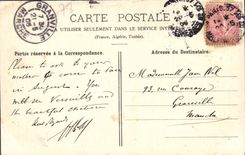 GRANVILLE
MANCHE
CARTE POSTALE
A UTILISER SEULEMENT DANS LE SERVICE INTÉRIEUR
(France, Algérie, Tunisie).
Partie réservée à la Correspondance.
Adresse du Destinataire.
Please to ask to your
mother to come to
in September. You
will see Versailles and
the beautiful chateau
Mademoiselle Jane
93, rue Couraye
Granville
Manche